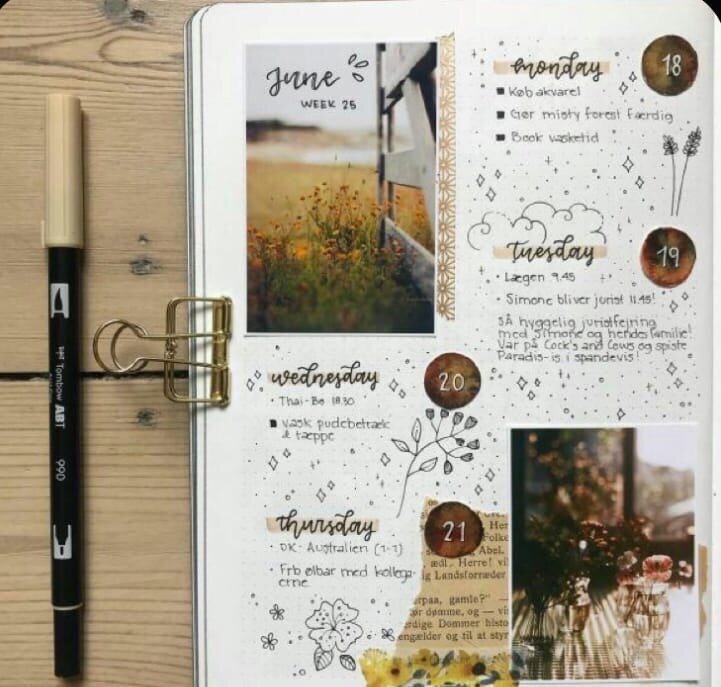 June
WEEK 25
monday
18
Køb akvarel
Gør misty forest færdig
Book vasketid
tuesday
19
Lægen 9.45
Simone bliver jurist 11.45!
SÅ hyggelig juristfejring
med Simone og hendes familie!
Var på Cock's and Cows og spiste
Paradis-is i spandevis!
wednesday
20
Thai-Bo 18.30
vask pudebetræk
& tæppe
thursday
21
DK-Australien (1-1)
Frb ølbar med kollega-
erne
Her
Folke
Abel.
ædl. Herre! vi
ig Landsforræder
orpaa, gamle?" —
ør dømme, og — vi
erdige Dommer histo
engælder og til at styr
Tombow ABT
990